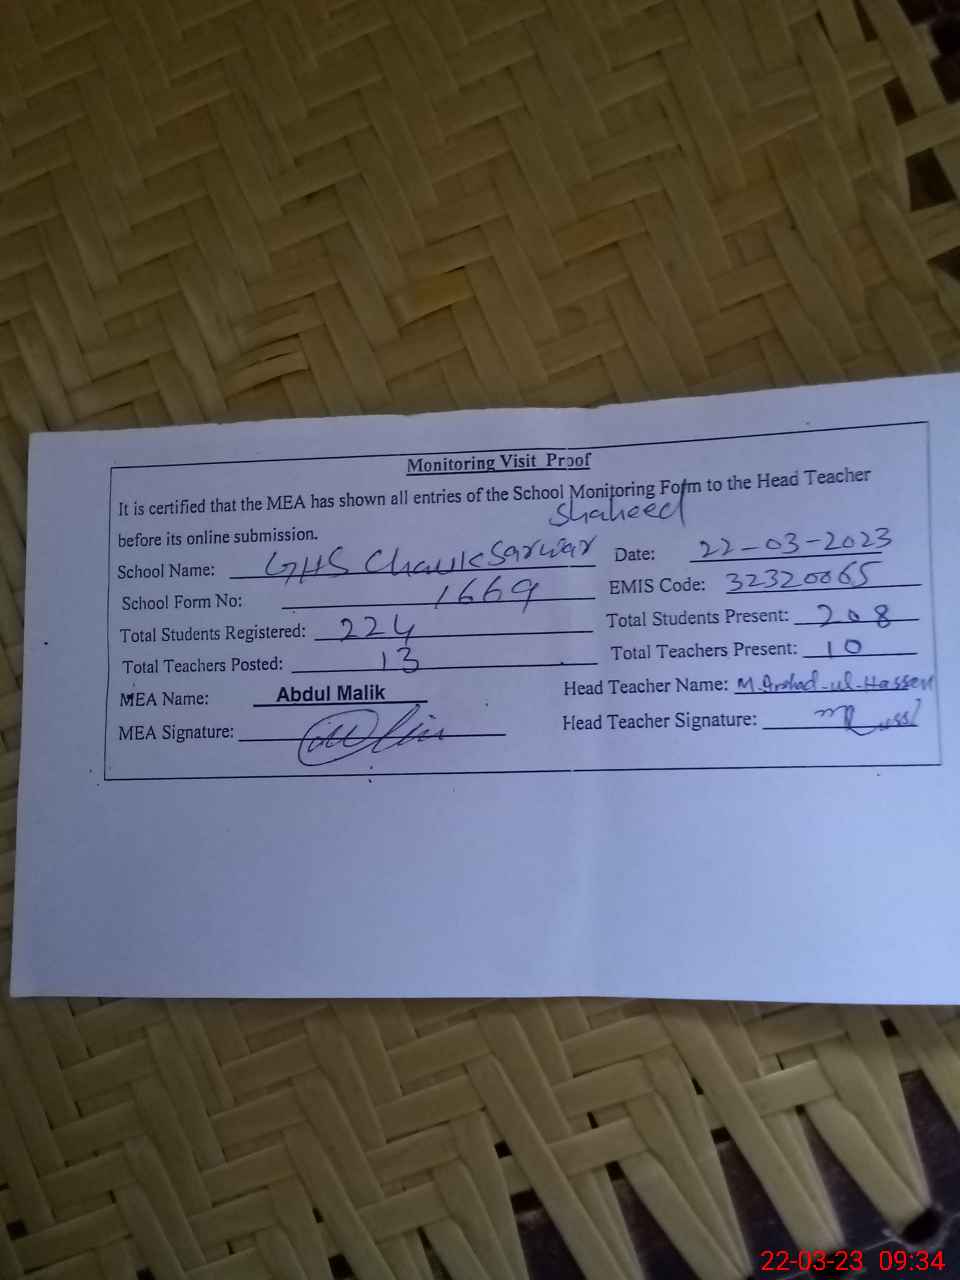 Monitoring Visit Proof
It is certified that the MEA has shown all entries of the School Monitoring Form to the Head Teacher
before its online submission.
Shaheed
School Name: GHS Chauk Sarwar Date: 22-03-2023
School Form No: 1669 EMIS Code: 32320065
Total Students Registered: 224 Total Students Present: 208
Total Teachers Posted: 13 Total Teachers Present: 10
MEA Name: Abdul Malik Head Teacher Name: M. Arshad-ul-Hassan
MEA Signature: Head Teacher Signature:
22-03-23 09:34